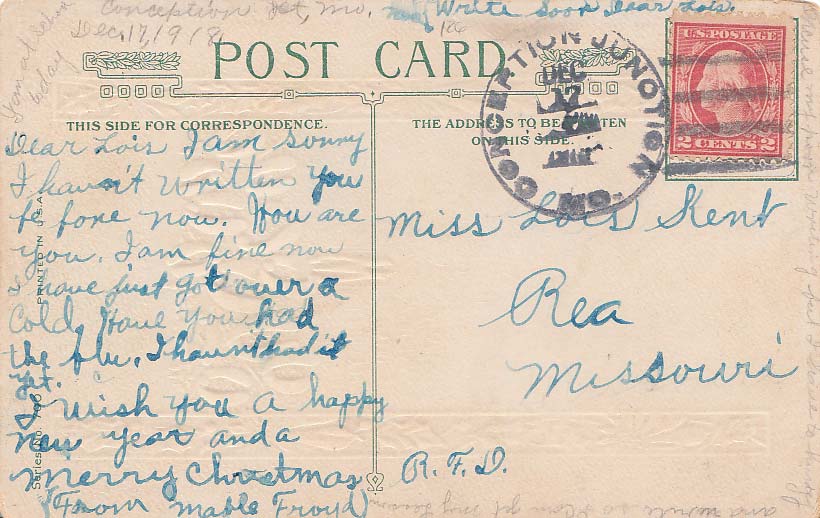 Conception Jct, Mo.
Dec. 17, 1918
Write Soon Dear Lois.
I am at School
today
POST CARD
THIS SIDE FOR CORRESPONDENCE.
THE ADDRESS TO BE WRITTEN
ON THIS SIDE.
CONCEPTION JUNCTION
MO.
DEC
17
U.S. POSTAGE
2 CENTS 2
Dear Lois I am sorry
I havn't written you
be fore now. How are
you. I am fine now
I have just got over a
Cold. Have you had
the flu. I havnt had it
yet.
I wish you a happy
new year and a
Merry Christmas
(From Mable Froyd)
Miss Lois Kent
Rea
Missouri
R.F.D.
PRINTED IN U.S.A.
"Series No. 700
Please my poor writing but I
and write so I can get my